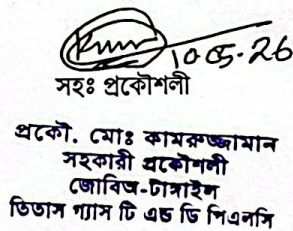 10.05.26
সহঃ প্রকৌশলী
প্রকৌ. মোঃ কামরুজ্জামান
সহকারী প্রকৌশলী
জোবিঅ-টাঙ্গাইল
তিতাস গ্যাস টি এন্ড ডি পিএলসি